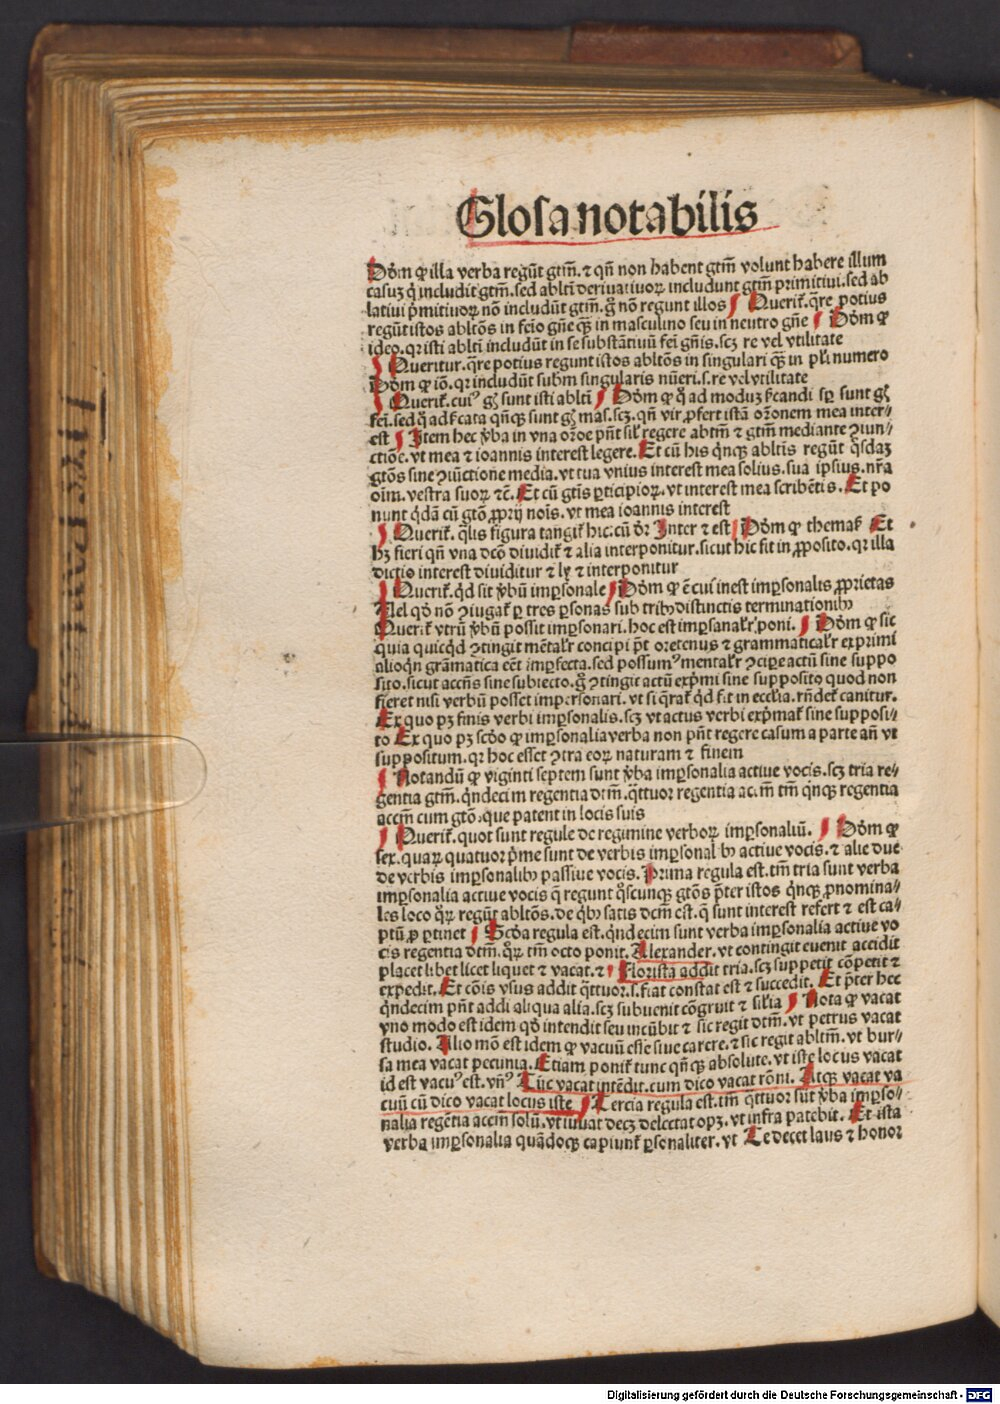 Glosa notabilis
Dōm ꝙ illa verba regūt gtm̄. ⁊ qn̄ non habent gtm̄ volunt habere illum
casuꝫ q̇ includit gtm̄. sed abltī deriuatiuoꝝ includunt gtm̄ primitiui. sed ab
latiui pͥmitiuoꝝ nō includūt gtm̄. gͦ nō regunt illos Querit̄. qͣre potius
regūt istos abltōs in feīo gn̄e qꝫ̄ in masculino seu in neutro gn̄e Dōm ꝙ
ideo. qꝛ isti abltī includūt in se substātiuū feī gn̄is. scꝫ re vel vtilitate
Queritur. qͣre potius regunt istos abltōs in singulari qꝫ̄ in plͥ numero
Dōm ꝙ iō. qꝛ includūt subm singularis nūeri. s. re vel vtilitate
Querit̄. cuiꝰ gn̄is sunt isti abltī Dōm ꝙ q̇ ad moduꝫ sͥcandi sꝑ sunt gn̄is
feī. sed q̇ ad sͥcata qn̄qꝫ sunt gn̄is mas. scꝫ. qn̄ vir ꝓfert istā orōnem mea inter⸗
est Item hec v̇ba in vna orōe pn̄t silͥ regere abtm̄ ⁊ gtm̄ mediante ꝯiun⸗
ctiōe. vt mea ⁊ ioannis interest legere. Et cū his qͥnqꝫ abltīs regūt qͦsdaꝫ
gtōs sine ꝯiūctione media. vt tua vnius interest mea solius. sua ipsius. nr̄a
oīm. vestra suoꝝ ⁊c̄. Et cū gtīs ꝑticipioꝝ. vt interest mea scribētis. Et po
nunt qͥdā cū gtō ꝓprij noīs. vt mea ioannis interest
Querit̄. qͣlis figura tangit̄ hic. cū dr̄ Inter ⁊ est Dōm ꝙ themas̄ Et
hꝫ fieri qn̄ vna dcō diuidit̄ ⁊ alia interponitur. sicut hic fit in ꝓposito. qꝛ illa
dictio interest diuiditur ⁊ lꝫ ⁊ interponitur
Querit̄. qd sit v̇bū impsonale Dōm ꝙ ē cui inest impsonalis ꝓprietas
Uel qd̓ nō ꝯiugat̄ ꝑ tres ꝑsonas sub tribꝰ distinctis terminationibꝰ
Querit̄ vtrū v̇bū possit impersonari. hoc est impsanalr̄ poni. Dōm ꝙ sic
quia quicqd̓ ꝯtingit mētalr̄ concipi pōt oretenus ⁊ grammaticalr̄ exprimi
alioqn̄ grāmatica eēt imꝑfecta. sed possumꝰ mentalr̄ ꝯcipe actū sine suppo
sito. sicut accn̄s sine subiecto. gͦ ꝯtingit actū expͥmi sine supposito quod non
fieret nisi verbū posset impersonari. vt si qͣrat̄ qd̓ fit in eccl̄ia. rn̄det̄ canitur.
Ex quo pꝫ finis verbi impsonalis. scꝫ vt actus verbi expͥmat̄ sine supposi⸗
to Ex quo pꝫ scd̓o ꝙ impsonalia verba non pn̄t regere casum a parte an̄ vt
suppositum. qꝛ hoc esset ꝯtra eoꝝ naturam ⁊ finem
Notandū ꝙ viginti septem sunt v̇ba impsonalia actiue vocis. scꝫ tria re⸗
gentia gtm̄. qͥndecim regentia dtm̄. qͣttuor regentia accm̄ tm̄ qͥnqꝫ regentia
accm̄ cum gtō. que patent in locis suis
Querit̄. quot sunt regule de regimine verboꝝ impsonaliū. Dōm ꝙ
sex. quaꝝ quatuor pͥme sunt de verbis impsonalibꝰ actiue vocis. ⁊ alie due
de verbis impsonalibꝰ passiue vocis. Prima regula est. tm̄ tria sunt verba
impsonalia actiue vocis q̄ regunt qͦscunqꝫ gtōs pͥter istos qͥnqꝫ ꝓnomina⸗
les loco qͦꝝ regūt abltōs. de qͥbꝰ satis dcm̄ est. q̄ sunt interest refert ⁊ est ca⸗
ptū ꝓ ꝑtinet Scd̓a regula est. qͥndecim sunt verba impsonalia actiue vo
cis regentia dtm̄. qͦꝝ tm̄ octo ponit. Alexander. vt contingit euenit accidit
placet libet licet liquet ⁊ vacat. ⁊ Florista addit tria. scꝫ suppetit cōpetit ⁊
expedit. Et cōis vsus addit qͣttuor. s. fiat constat est ⁊ succedit. Et pͥter hec
qͥndecim pn̄t addi aliqua alia. scꝫ subuenit cōgruit ⁊ sil̄ia Nota ꝙ vacat
vno modo est idem qd̓ intendit seu incūbit ⁊ sic regit dtm̄. vt petrus vacat
studio. Alio mō est idem ꝙ vacuū esse siue carere. ⁊ sic regit abltm̄. vt bur⸗
sa mea vacat pecunia. Etiam ponit̄ tunc qn̄qꝫ absolute. vt iste locus vacat
id est vacuꝰ est. vn̄ꝰ Tūc vacat intēdit. cum dico vacat rōni. Atqꝫ vacat va
cuū cū dico vacat locus iste Tercia regula est. tm̄ qͣttuor sūt v̇ba impso⸗
nalia regētia accm̄ solū. vt iuuat decꝫ delectat opꝫ. vt infra patebit. Et ista
verba impsonalia quādoqꝫ capiunt̄ ꝑsonaliter. vt Te decet laus ⁊ honor
Digitalisierung gefördert durch die Deutsche Forschungsgemeinschaft - DFG